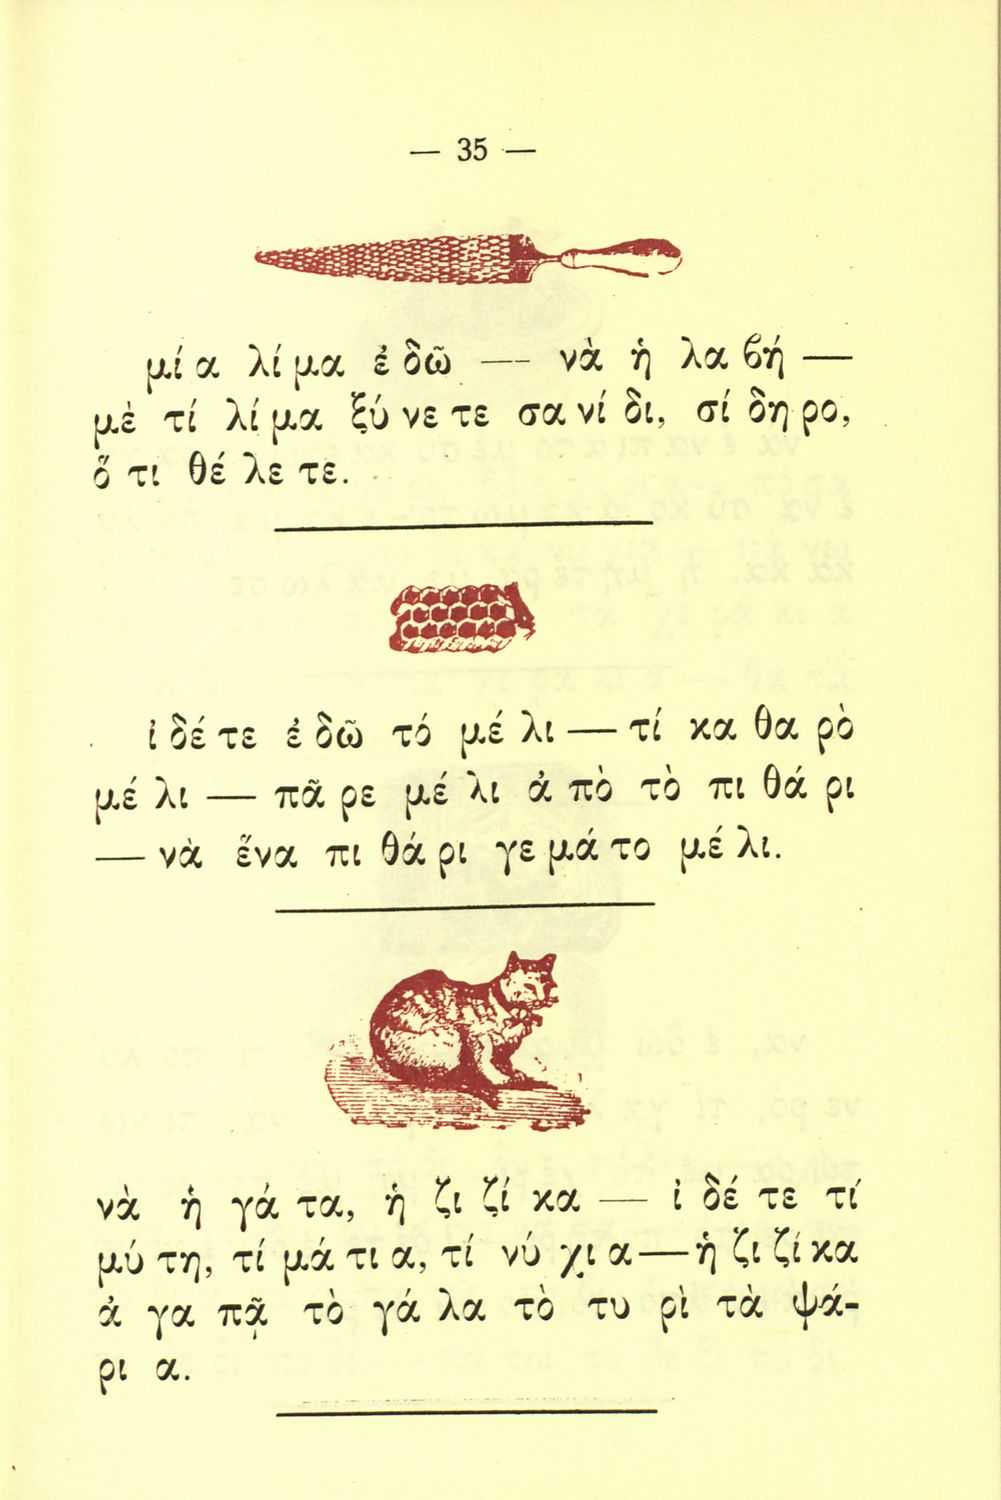 — 35 —
μί α λί μα ἐ δῶ — νὰ ἡ λα βή —
μὲ τί λί μα ξύ νε τε σα νί δι, σί δη ρο,
ὅ τι θέ λε τε.
ἰ δέ τε ἐ δῶ τό μέ λι — τί κα θα ρὸ
μέ λι — πᾶ ρε μέ λι ἀ πὸ τὸ πι θά ρι
— νὰ ἕνα πι θά ρι γε μά το μέ λι.
νὰ ἡ γά τα, ἡ ζι ζί κα — ἰ δέ τε τί
μύ τη, τί μά τι α, τί νύ χι α — ἡ ζι ζί κα
ἀ γα πᾷ τὸ γά λα τὸ τυ ρὶ τὰ ψά-
ρι α.